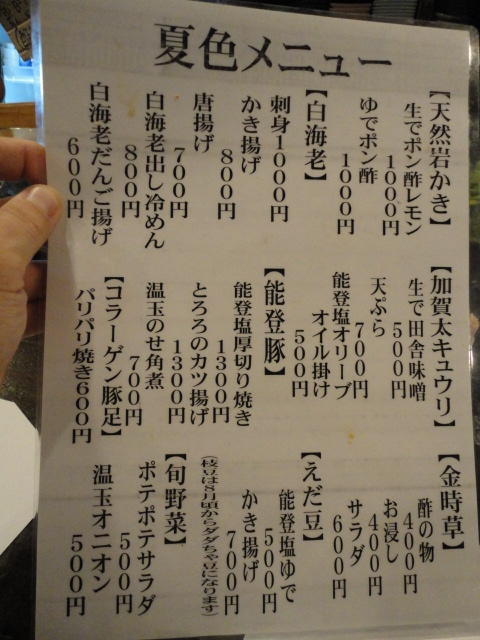 夏色メニュー
【天然岩かき】
生でポン酢レモン
1000円
ゆでポン酢
1000円
【白海老】
刺身1000円
かき揚げ
800円
唐揚げ
700円
白海老出し冷めん
800円
白海老だんご揚げ
600円
【加賀太キュウリ】
生で田舎味噌
500円
天ぷら
700円
能登塩オリーブ
オイル掛け
500円
【能登豚】
能登塩厚切り焼き
1300円
とろろのカツ揚げ
1300円
温玉のせ角煮
700円
【コラーゲン豚足】
パリパリ焼き600円
【金時草】
酢の物
400円
お浸し
400円
サラダ
600円
【えだ豆】
能登塩ゆで
500円
かき揚げ
700円
(枝豆は8月頃からダダちゃ豆になります)
【旬野菜】
ポテポテサラダ
500円
温玉オニオン
500円